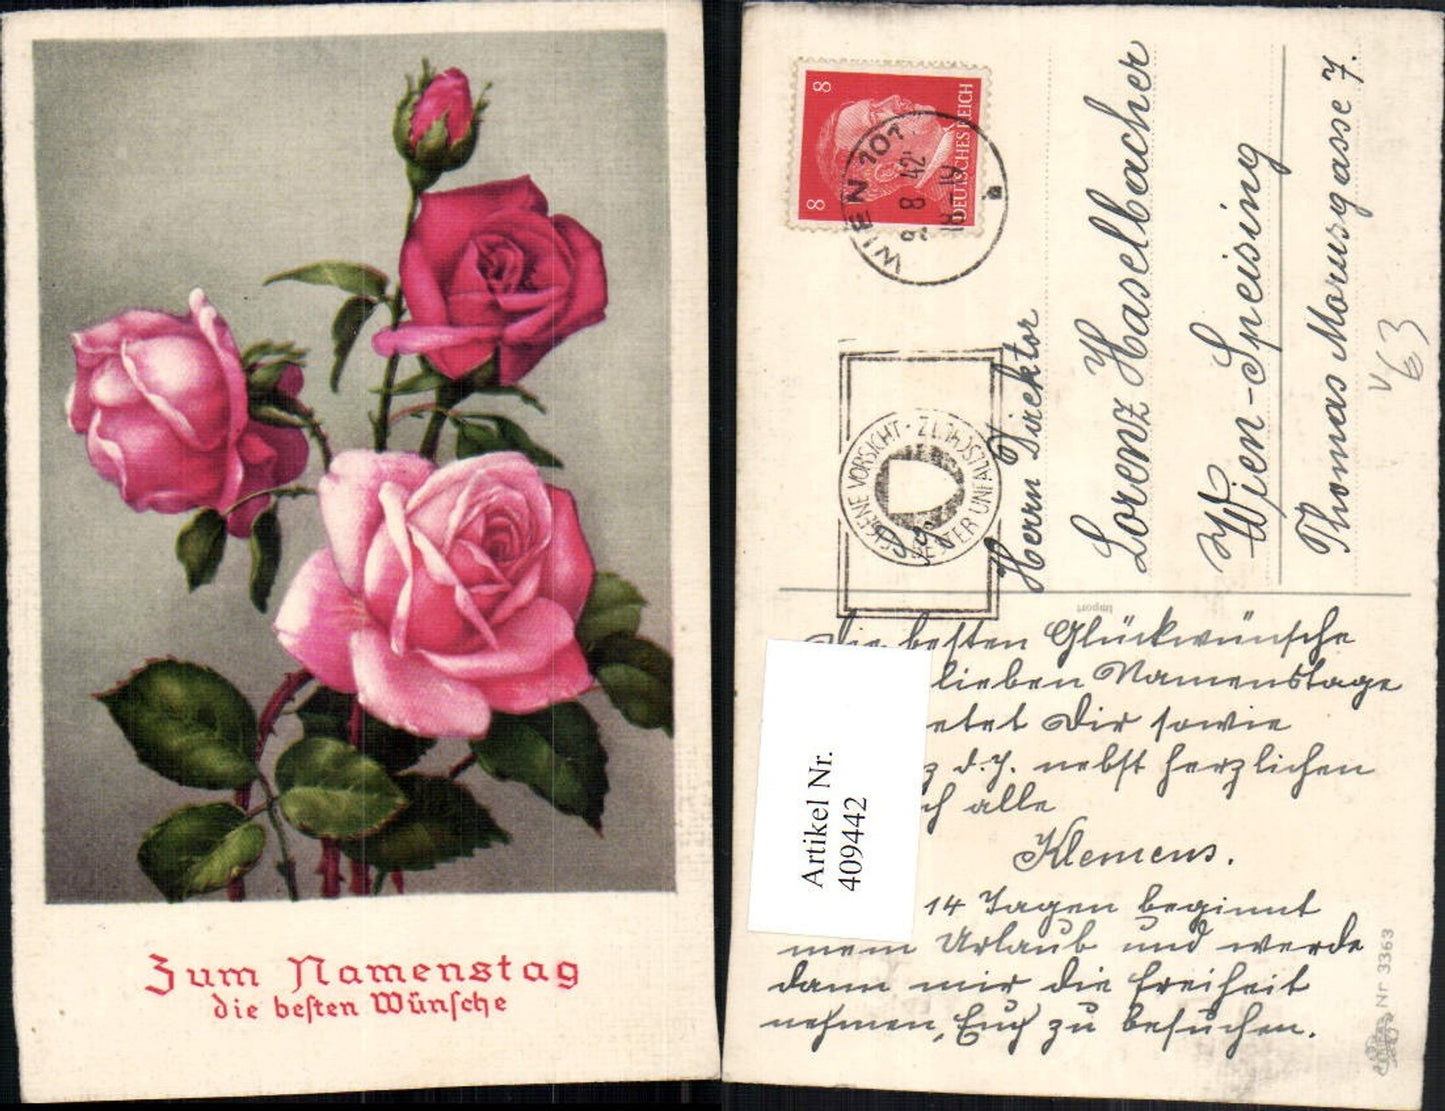 Zum Namenstag
die besten Wünsche
8
8
DEUTSCHES REICH
WIEN 101
8 42
18-19
EIGENE VORSICHT · BESTER UNFALLSCHUTZ
Herrn Direktor
Lorenz Haselbacher
Wien-Speising
Thomas Morusgasse 7.
V63
Import
Die besten Glückwünsche
lieben Namenstage
etet Dir sowie
z d. J. nebst herzlichen
ch alle
Klemens.
14 Tagen beginnt
mein Urlaub und werde
dann mir die Freiheit
nehmen, Euch zu besuchen.
Artikel Nr.
409442
Nr 3363